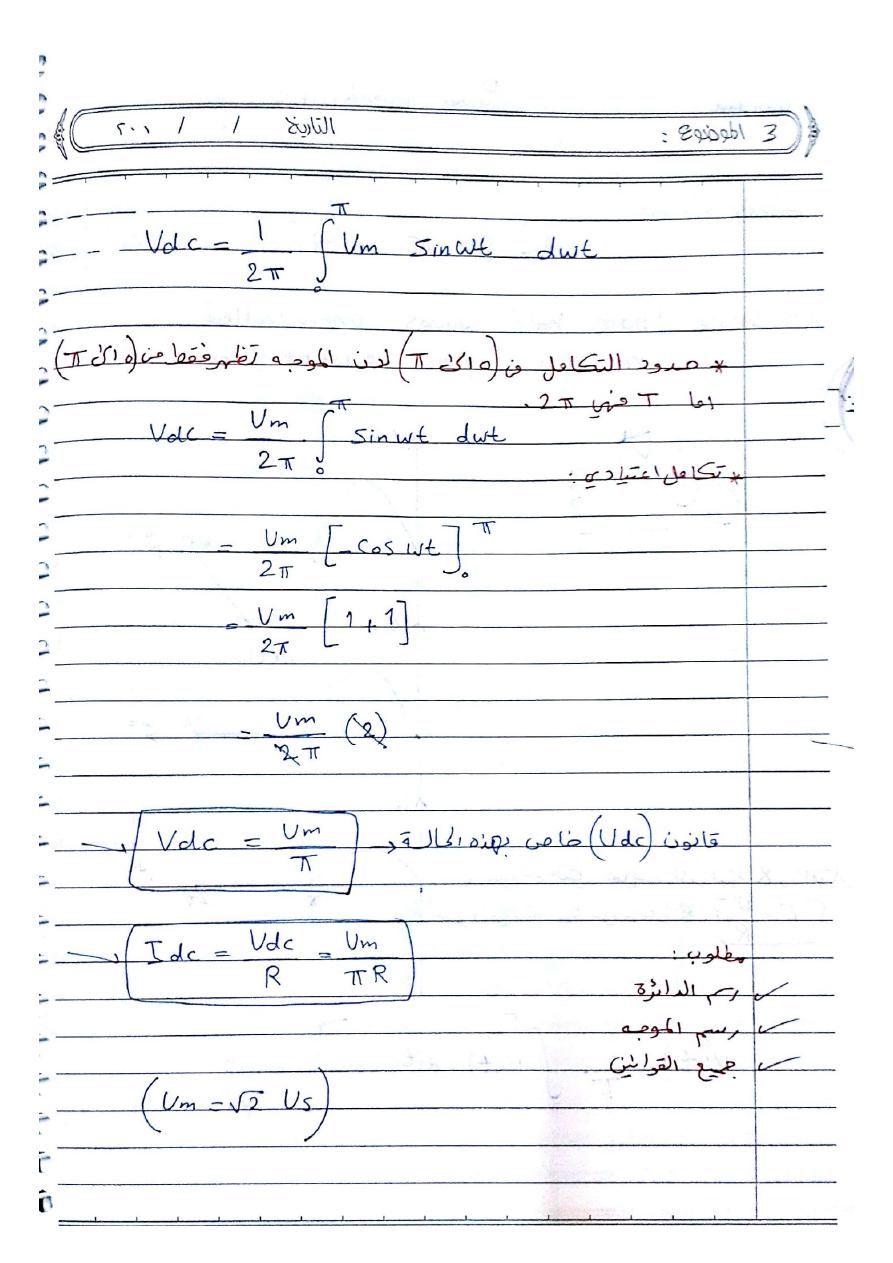 3 الموضوع : التاريخ / / ٢٠٠١
Vdc = 1/2π ∫₀^π Vm sinwt dwt
* حدود التكامل من (0 الى π) لان الموجه تظهر فقط من (0 الى π)
اما T فهي 2π .
Vdc = Vm/2π ∫₀^π sinwt dwt
* تكامل اعتيادي :
= Vm/2π [-cos wt]₀^π
= Vm/2π [1+1]
= Vm/2π (2)
قانون (Vdc) خاص بهذه الحالة → Vdc = Vm/π
Idc = Vdc/R = Vm/πR
مطلوب :
✓ رسم الدائرة
✓ رسم الموجه
✓ جميع القوانين
(Vm = √2 Vs)